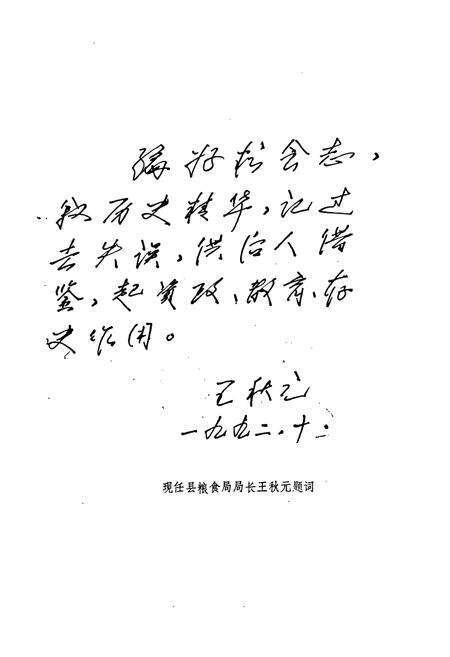 编好粮食志，
叙历史精华，记过
去失误，供后人借
鉴，起资政、教育、存
史作用。
王秋元
一九九二．十．
现任县粮食局局长王秋元题词